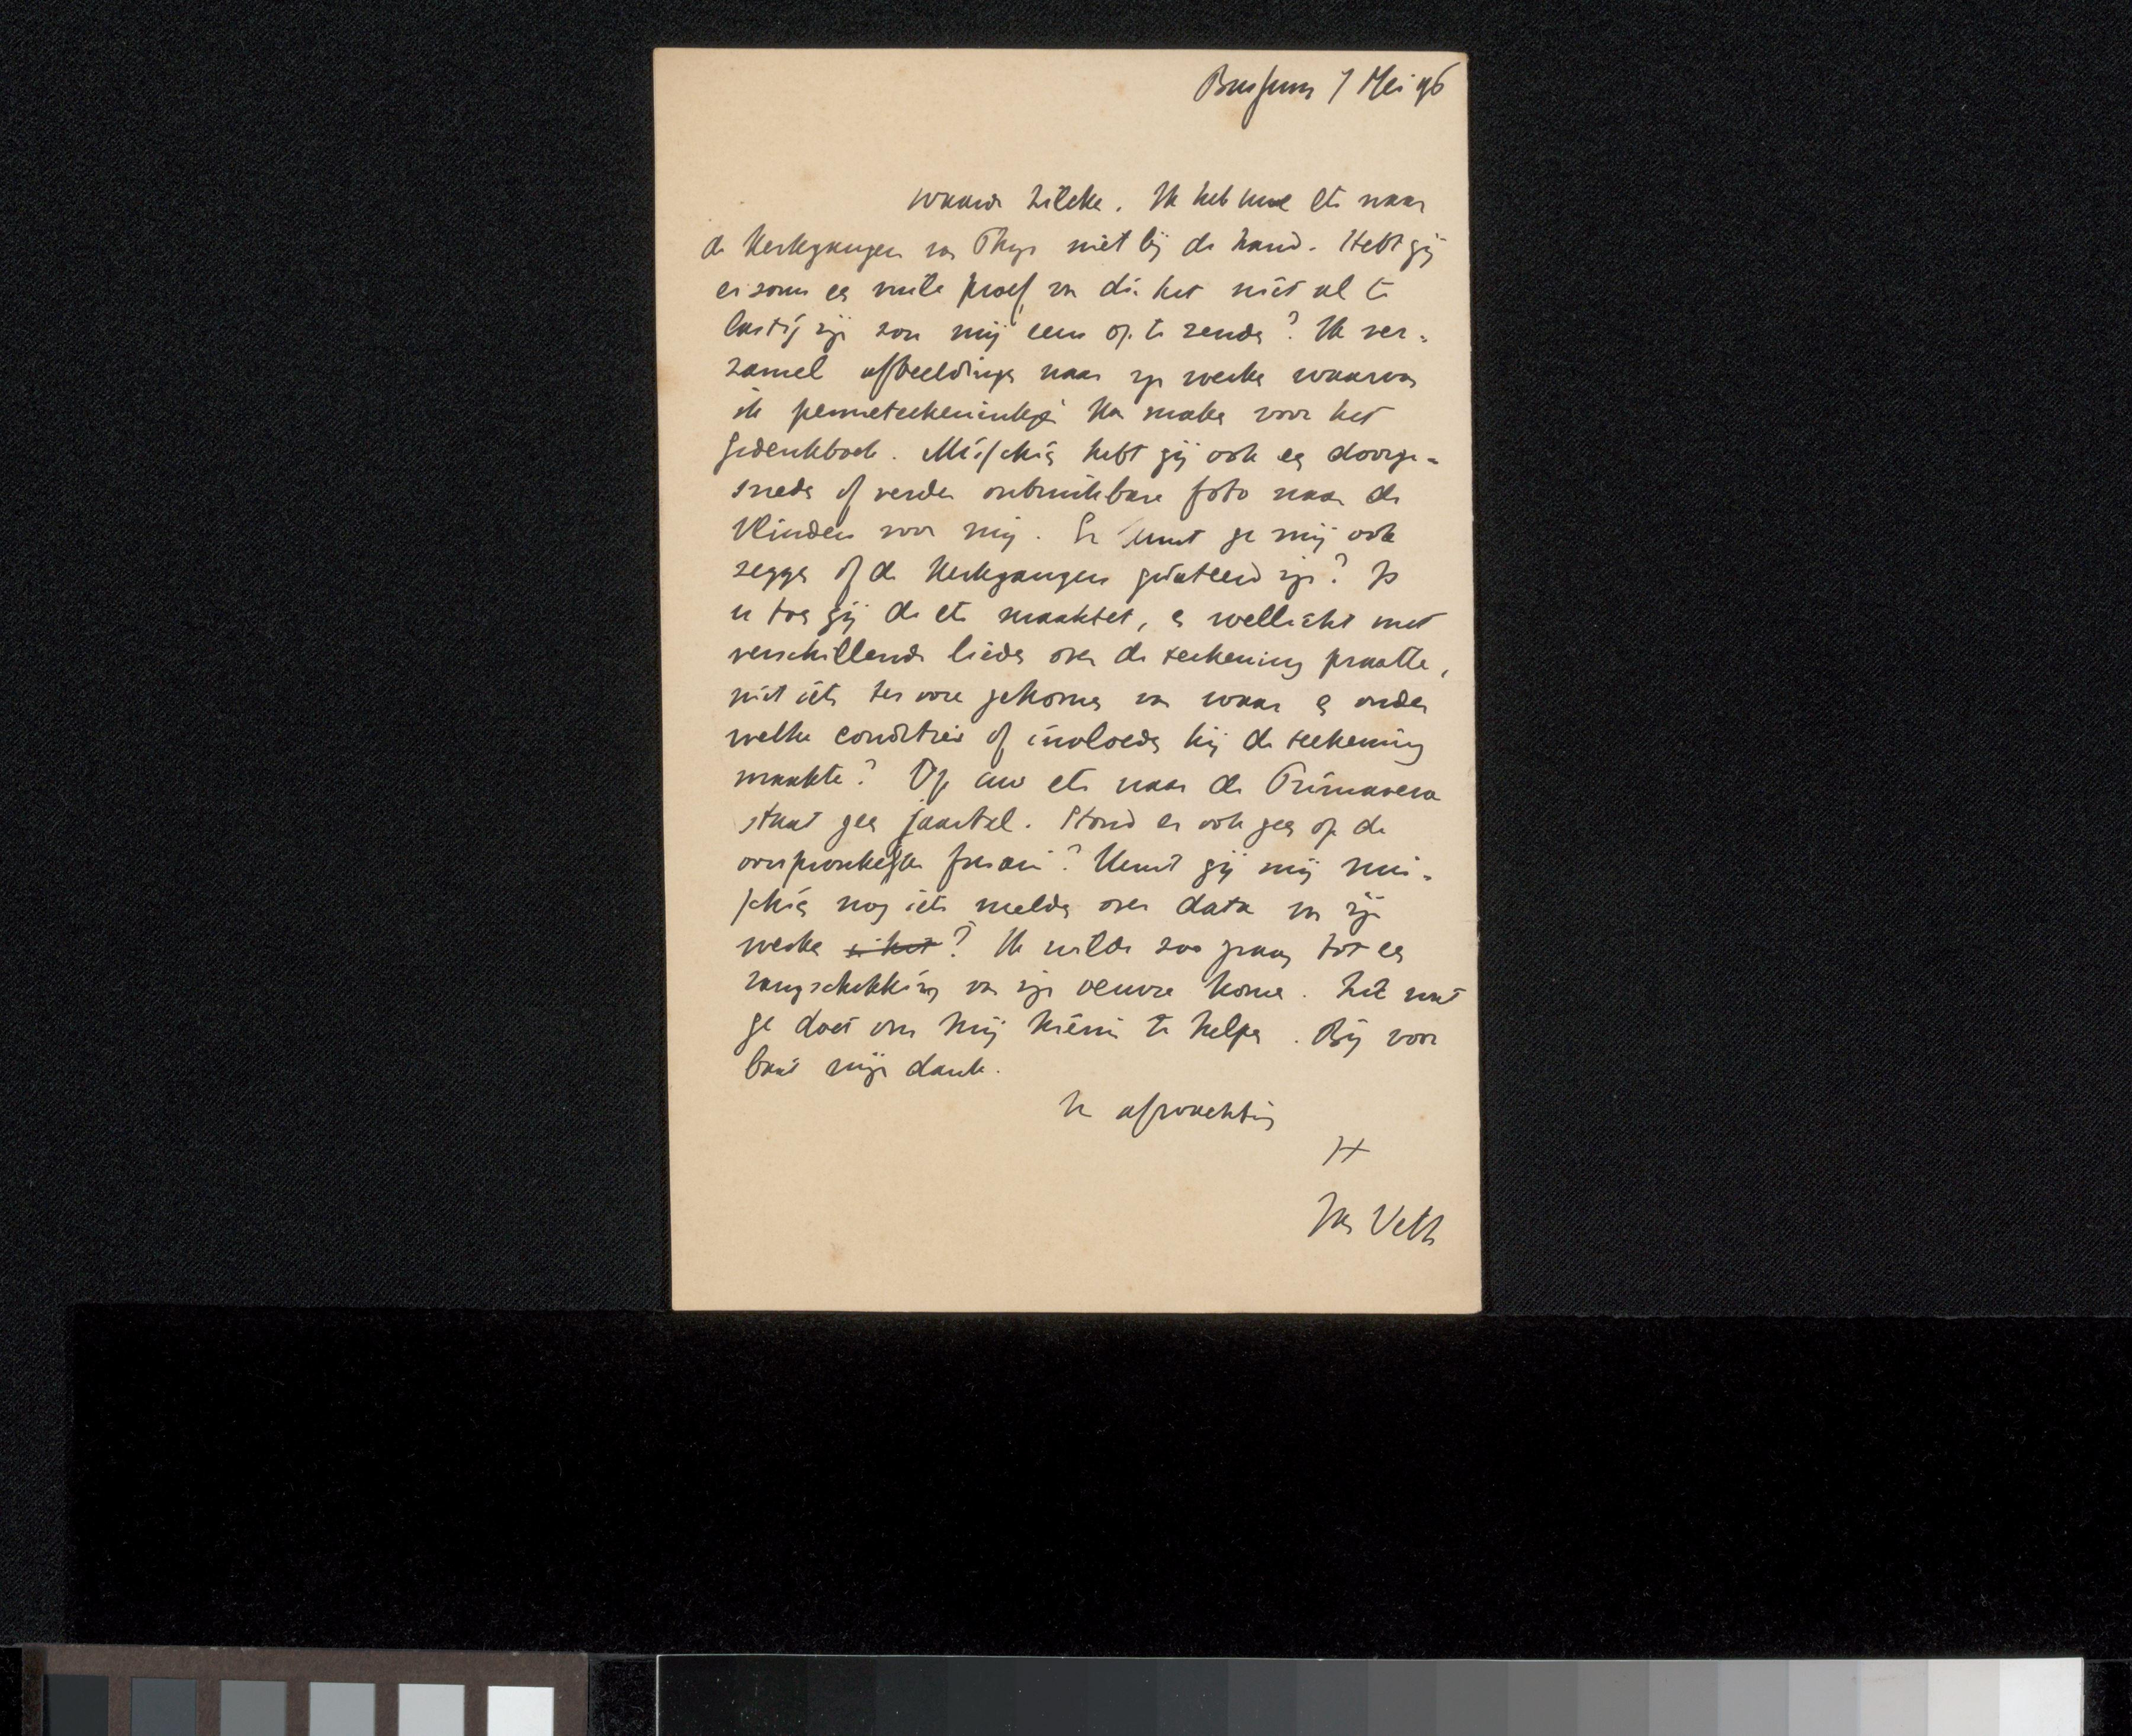 Bussum 7 Mei 96
Waarde Zilcke. Ik heb uwe ets naar
de Kerkgangers van Thijs niet bij de hand. Hebt gij
er soms een vuile proef van die het niet al te
lastig zijn zou mij eens op te zenden? Ik ver-
zamel afbeeldingen naar zijn werken waarvan
ik penneteekeninkjes kan maken voor het
Gedenkboek. Misschien hebt gij ook een doorge-
sneden of verder onbruikbare foto naar de
Vlinders voor mij. En kunt ge mij ook
zeggen of de Kerkgangers gedateerd zijn? Is
u toen gij de ets maaktet, en wellicht met
verschillende lieden over de teekening praatte,
niet iets ter oore gekomen van waar en onder
welke condities of invloeden hij de teekening
maakte? Op uw ets naar de Primavera
staat geen jaartal. Stond er ook geen op de
oorspronkelijke
? Kunt gij mij mis-
schien nog iets melden over data van zijn
werken ? Ik wilde zoo graag tot een
rangschikking van zijn oeuvre komen. Zie wat
ge doet om mij hierin te helpen. Bij voor
baat mijn dank.
In afwachting
Jan Veth